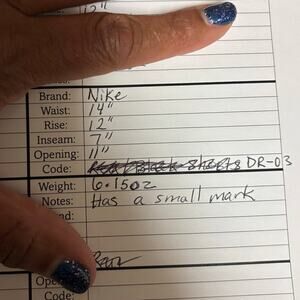 12"
Brand: Nike
Waist: 14"
Rise: 12"
Inseam: 7"
Opening: 11"
Code: DR-03
Weight: 6.15oz
Notes: Has a small mark
Code: